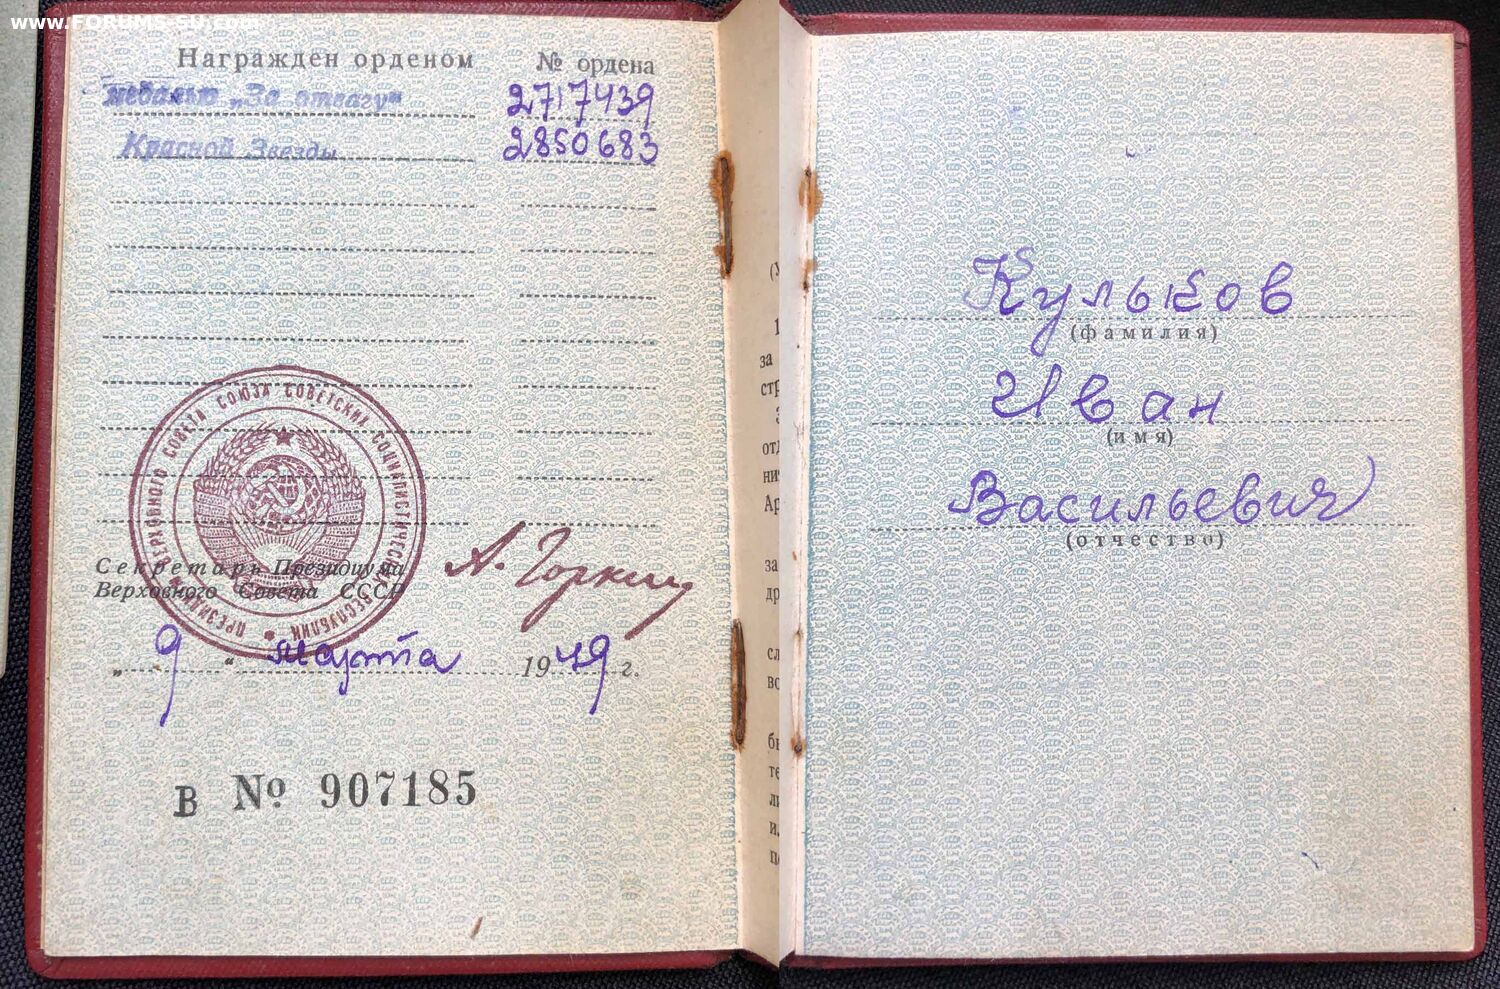 www.FORUMS-SU.com
Награжден орденом № ордена
медалью „За отвагу“ 2717439
Красной Звезды 2850683
ПРЕЗИДИУМ ВЕРХОВНОГО СОВЕТА СОЮЗА СОВЕТСКИХ СОЦИАЛИСТИЧЕСКИХ РЕСПУБЛИК
Секретарь Президиума
Верховного Совета СССР
А. Горкин
„ 9 “ марта 1949 г.
В № 907185
за
Кульков
(фамилия)
Иван
(имя)
Васильевич
(отчество)